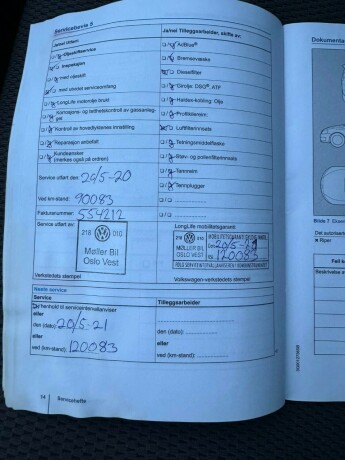 Servicebevis 5
Ja/nei Utført:
Ja/nei Tilleggsarbeider, skifte av:
Oljeskiftservice
AdBlue®
Inspeksjon
Bremsevæske
med oljeskift
Dieselfilter
med utvidet serviceomfang
Girolje: DSG®, ATF
LongLife motorolje brukt
Haldex-kobling: Olje
Korrosjons- og tetthetskontroll av gassanlegget
Profilkilerem:
Kontroll av hovedlyktenes innstilling
Luftfilterinnsats
Reparasjon anbefalt
Tetningsmiddelflaske
Kundeønsker
(merkes også på ordren)
Støv- og pollenfilterinnsats
Service utført den: 20/5-20
Tannreim
Tennplugger
Ved km-stand: 90083
Fakturanummer: 554212
Service utført av:
LongLife mobilitetsgaranti
218 010
Møller Bil
Oslo Vest
218 010
MØLLER BIL
OSLO VEST
20/5-21
120083
Verkstedets stempel
Volkswagen-verkstedets stempel
Neste service
Service
Tilleggsarbeider
I henhold til serviceintervallanviser
eller
den (dato): 20/5-21
den (dato):
eller
eller
ved (km-stand): 120083
ved (km-stand):
14 Servicehefte
Dokumenta
Bilde 7
Riper